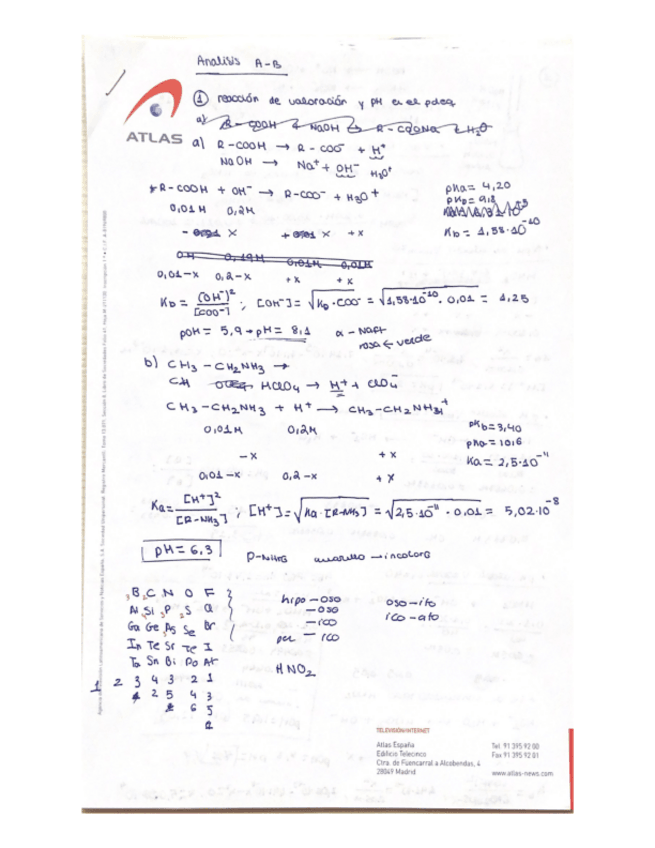 Analisis A-B
① reacción de valoración y pH en el pdeq
a) R-COOH + NaOH → R-COONa + H₂O
ATLAS
a) R-COOH → R-COO⁻ + H⁺
NaOH → Na⁺ + OH⁻
H₃O⁺
R-COOH + OH⁻ → R-COO⁻ + H₃O⁺
pKa = 4,20
pKb = 9,8
0,01M 0,2M
Kb = 1,58·10⁻¹⁰
- X + X + X
0,01-X 0,2-X +X +X
Kb = [OH⁻]²/[COO⁻] ; [OH⁻] = √Kb·COO⁻ = √1,58·10⁻¹⁰·0,01 = 1,25
pOH = 5,9 → pH = 8,1 α-NAFT
rosa ← verde
b) CH₃-CH₂NH₃ →
HClO₄ → H⁺ + ClO₄⁻
CH₃-CH₂NH₃ + H⁺ → CH₃-CH₂NH₃⁺
0,01M 0,2M
pKb = 3,40
pKa = 10,6
-X +X
Ka = 2,5·10⁻¹¹
0,01-X 0,2-X +X
Ka = [H⁺]²/[R-NH₃] ; [H⁺] = √Ka·[R-NH₃] = √2,5·10⁻¹¹·0,01 = 5,02·10⁻⁸
pH = 6,3
amarillo → incoloro
B C N O F
Al Si P S Cl
Ga Ge As Se Br
In Te Sr Te I
Ta Sn Bi Po At
1 2 3 4 3 2 1
2 5 4 3
6 5
hipo - oso
- oso
- ico
per - ico
oso - ito
ico - ato
HNO₂
TELEVISIÓN/INTERNET
Atlas España
Edificio Telecinco
Ctra. de Fuencarral a Alcobendas, 4
28049 Madrid
Tel. 91 395 92 00
Fax 91 395 92 01
www.atlas-news.com